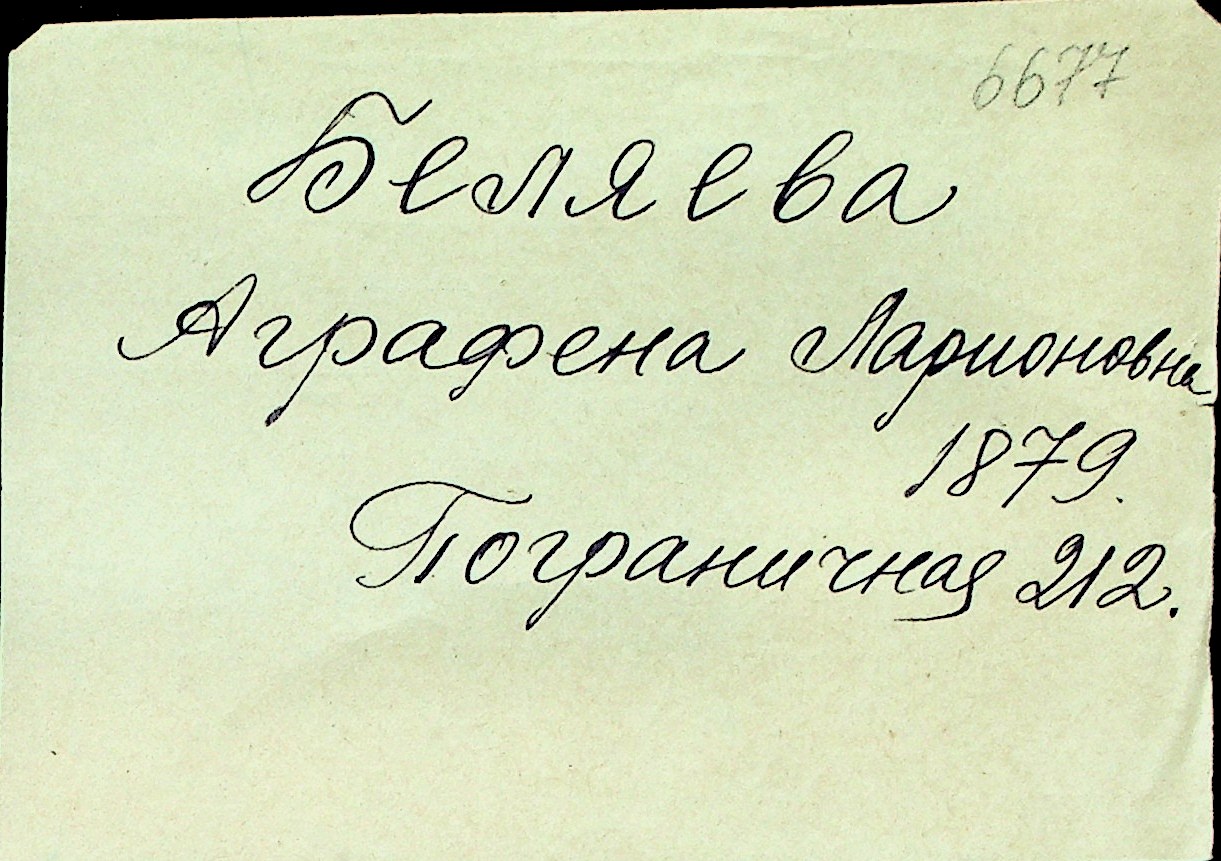 6677
Беляева
Аграфена Ларионовна
1879.
Пограничная 212.